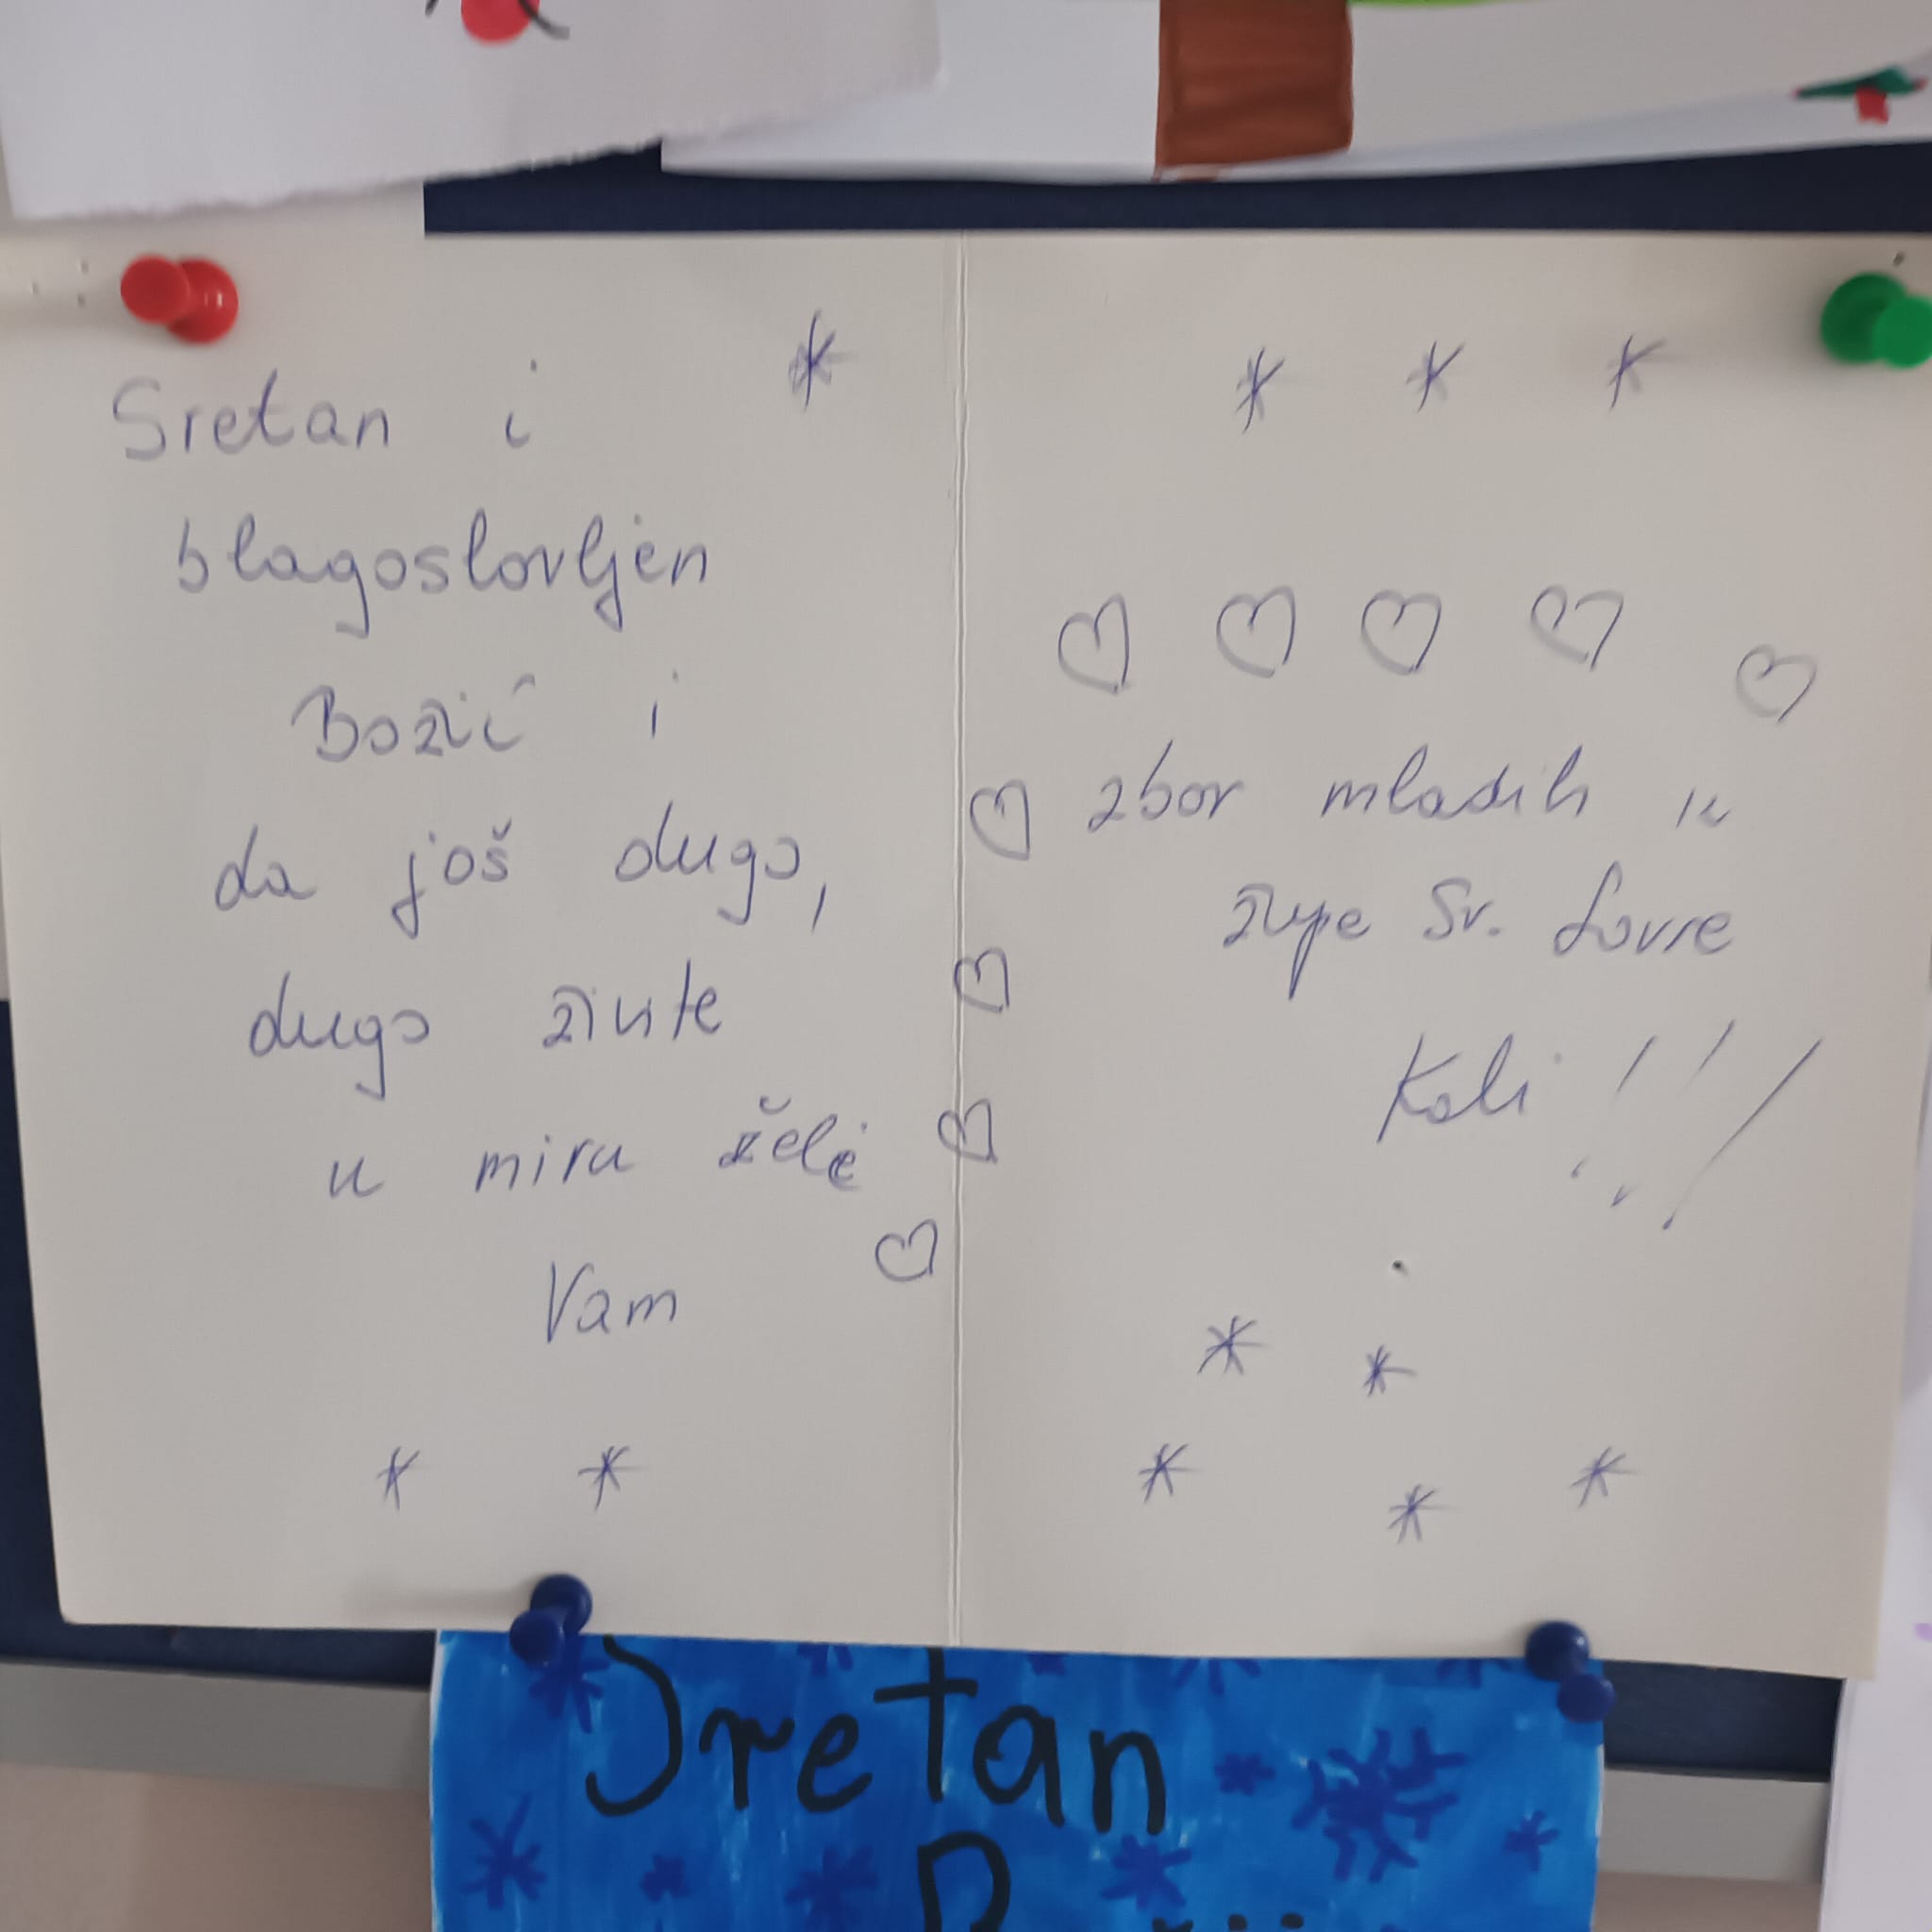 Sretan i
blagoslovljen
Božić i
da još dugo,
dugo živite
u miru želi
Vam
zbor mladih iz
župe Sv. Lovre
Kali!!!
Sretan